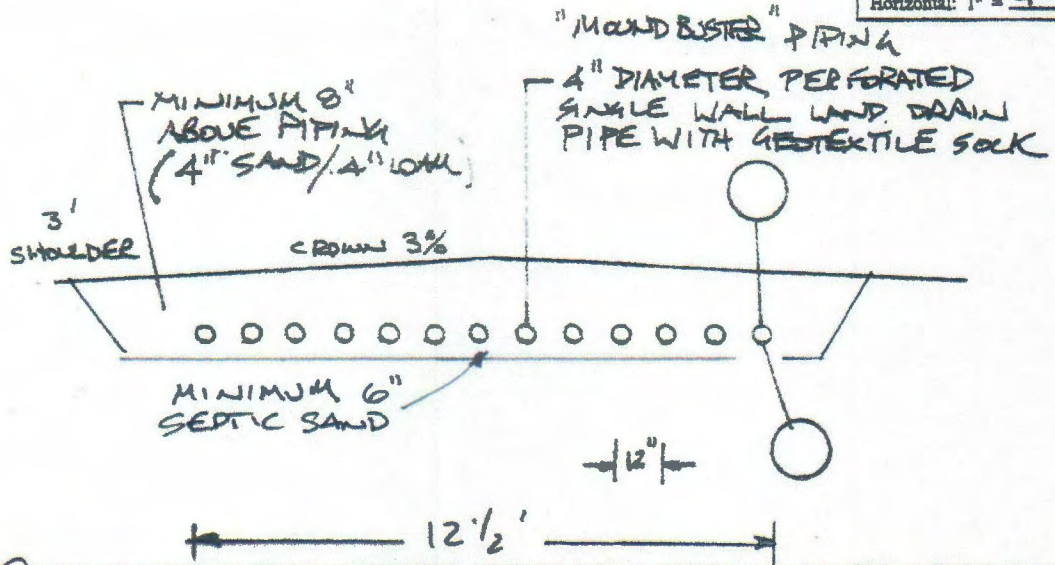 Horizontal: 1" =
"MOUND BUSTER" PIPING
4" DIAMETER PERFORATED
SINGLE WALL LAND DRAIN
PIPE WITH GEOTEXTILE SOCK
MINIMUM 8"
ABOVE PIPING
(4" SAND/4" LOAM)
3'
SHOULDER
CROWN 3%
MINIMUM 6"
SEPTIC SAND
12"
12 1/2'